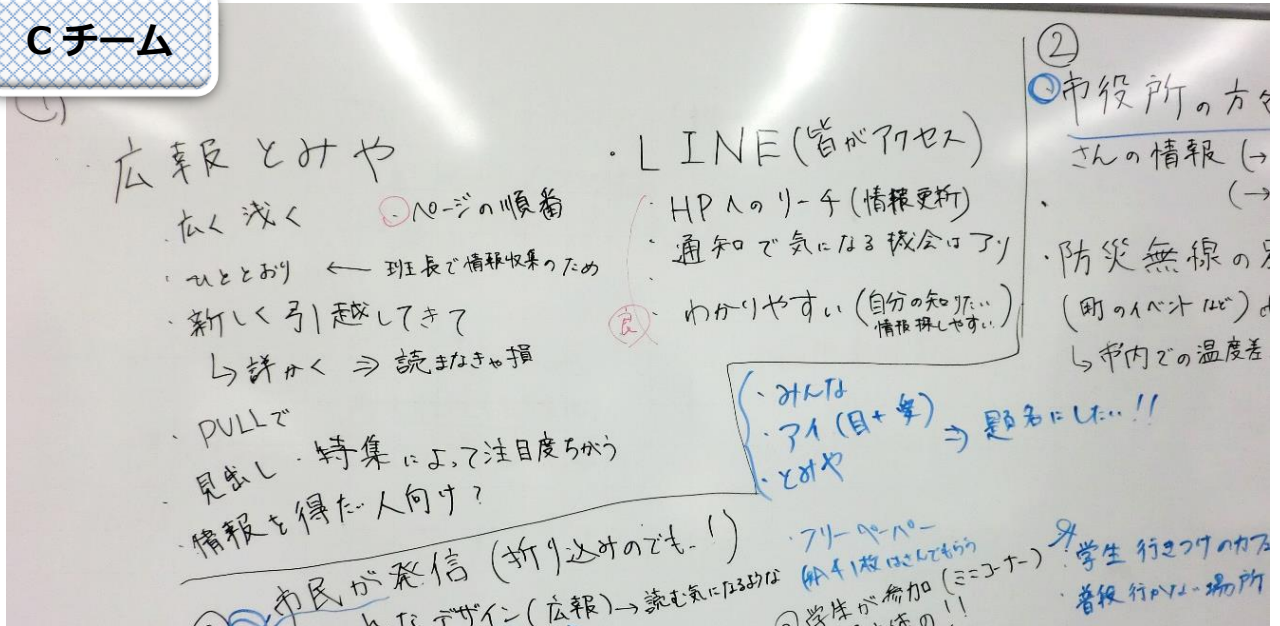 Cチーム
①
・広報とみや
・広く浅く
・ページの順番
・ひととおり ← 班長で情報収集のため
・新しく引越してきて
↳詳かく ⇒ 読まなきゃ損
・PULLで
見出し・特集によって注目度ちがう
・情報を得たい人向け?
・LINE(皆がアクセス)
・HPへのリーチ(情報更新)
・通知で気になる機会はアリ
・わかりやすい(自分の知りたい情報探しやすい)
良
②
市役所の方々
さんの情報(→
(→
・防災無線の
(町のイベントなど)
↳市内での温度差
・みんな
・アイ(目+愛)
・とみや
⇒ 題名にしたい!!
市民が発信(折り込みのでも…!)
デザイン(広報)→読む気になるような
・フリーペーパー
1枚はさんでもらう
学生が参加(ミニコーナー)
学生行きつけのカフェ
・普段行かない場所